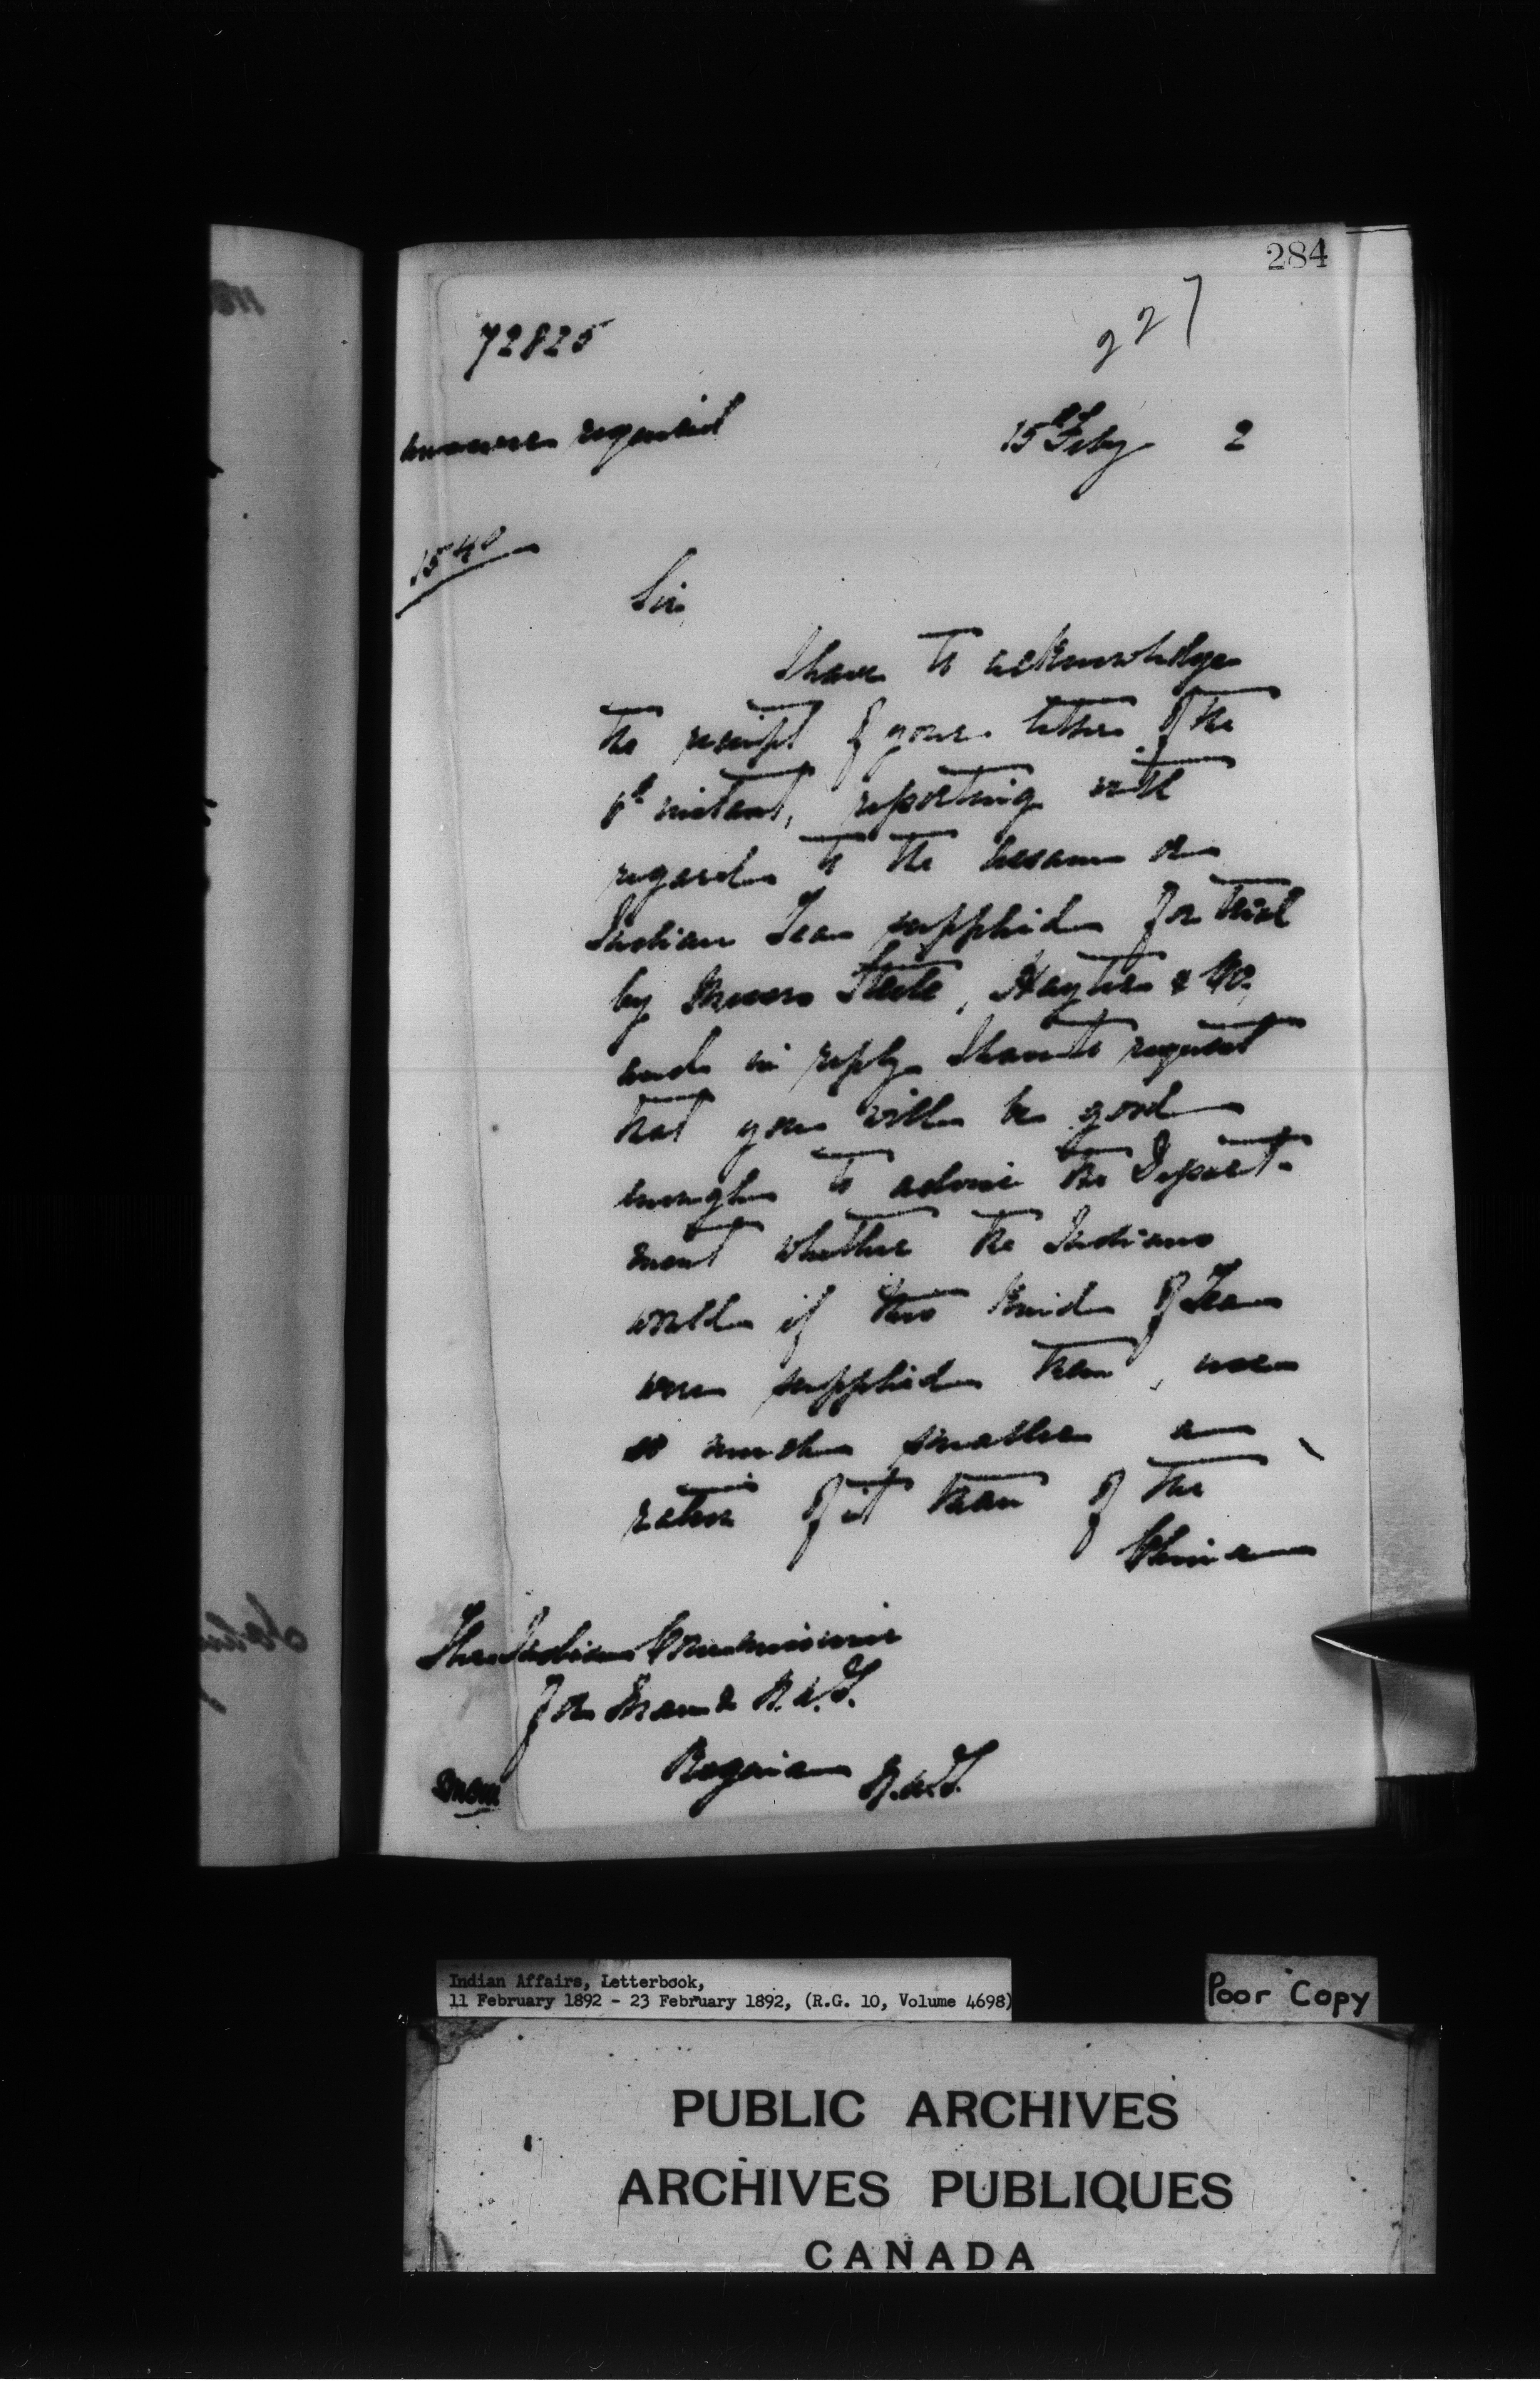 284
72825
227
answer required
15th Feby 2
1540
Sir,
I have to acknowledge
the receipt of your letter of the
instant, reporting with
regard to the Assam or
Indian Tea supplied for trial
by Messrs Steele, Hayter & Co.
and in reply I have to request
that you will be good
enough to advise the Depart-
ment whether the Indians
would if this kind of Tea
were supplied them, use
so much smaller a
ration of it than of the
China
The Indian Commissioner
for Man & N.W.T.
Regina N.W.T.
Indian Affairs, Letterbook,
11 February 1892 - 23 February 1892, (R.G. 10, Volume 4698)
Poor Copy
PUBLIC ARCHIVES
ARCHIVES PUBLIQUES
CANADA